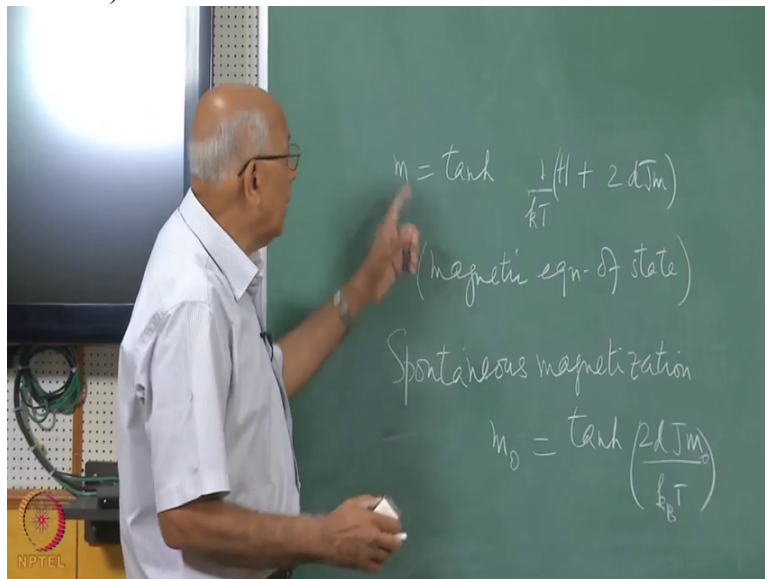 m = tanh 1/kT (H + 2dJm)
(magnetic eqn. of state)
Spontaneous magnetization
m₀ = tanh (2dJm₀/k_BT)
NPTEL